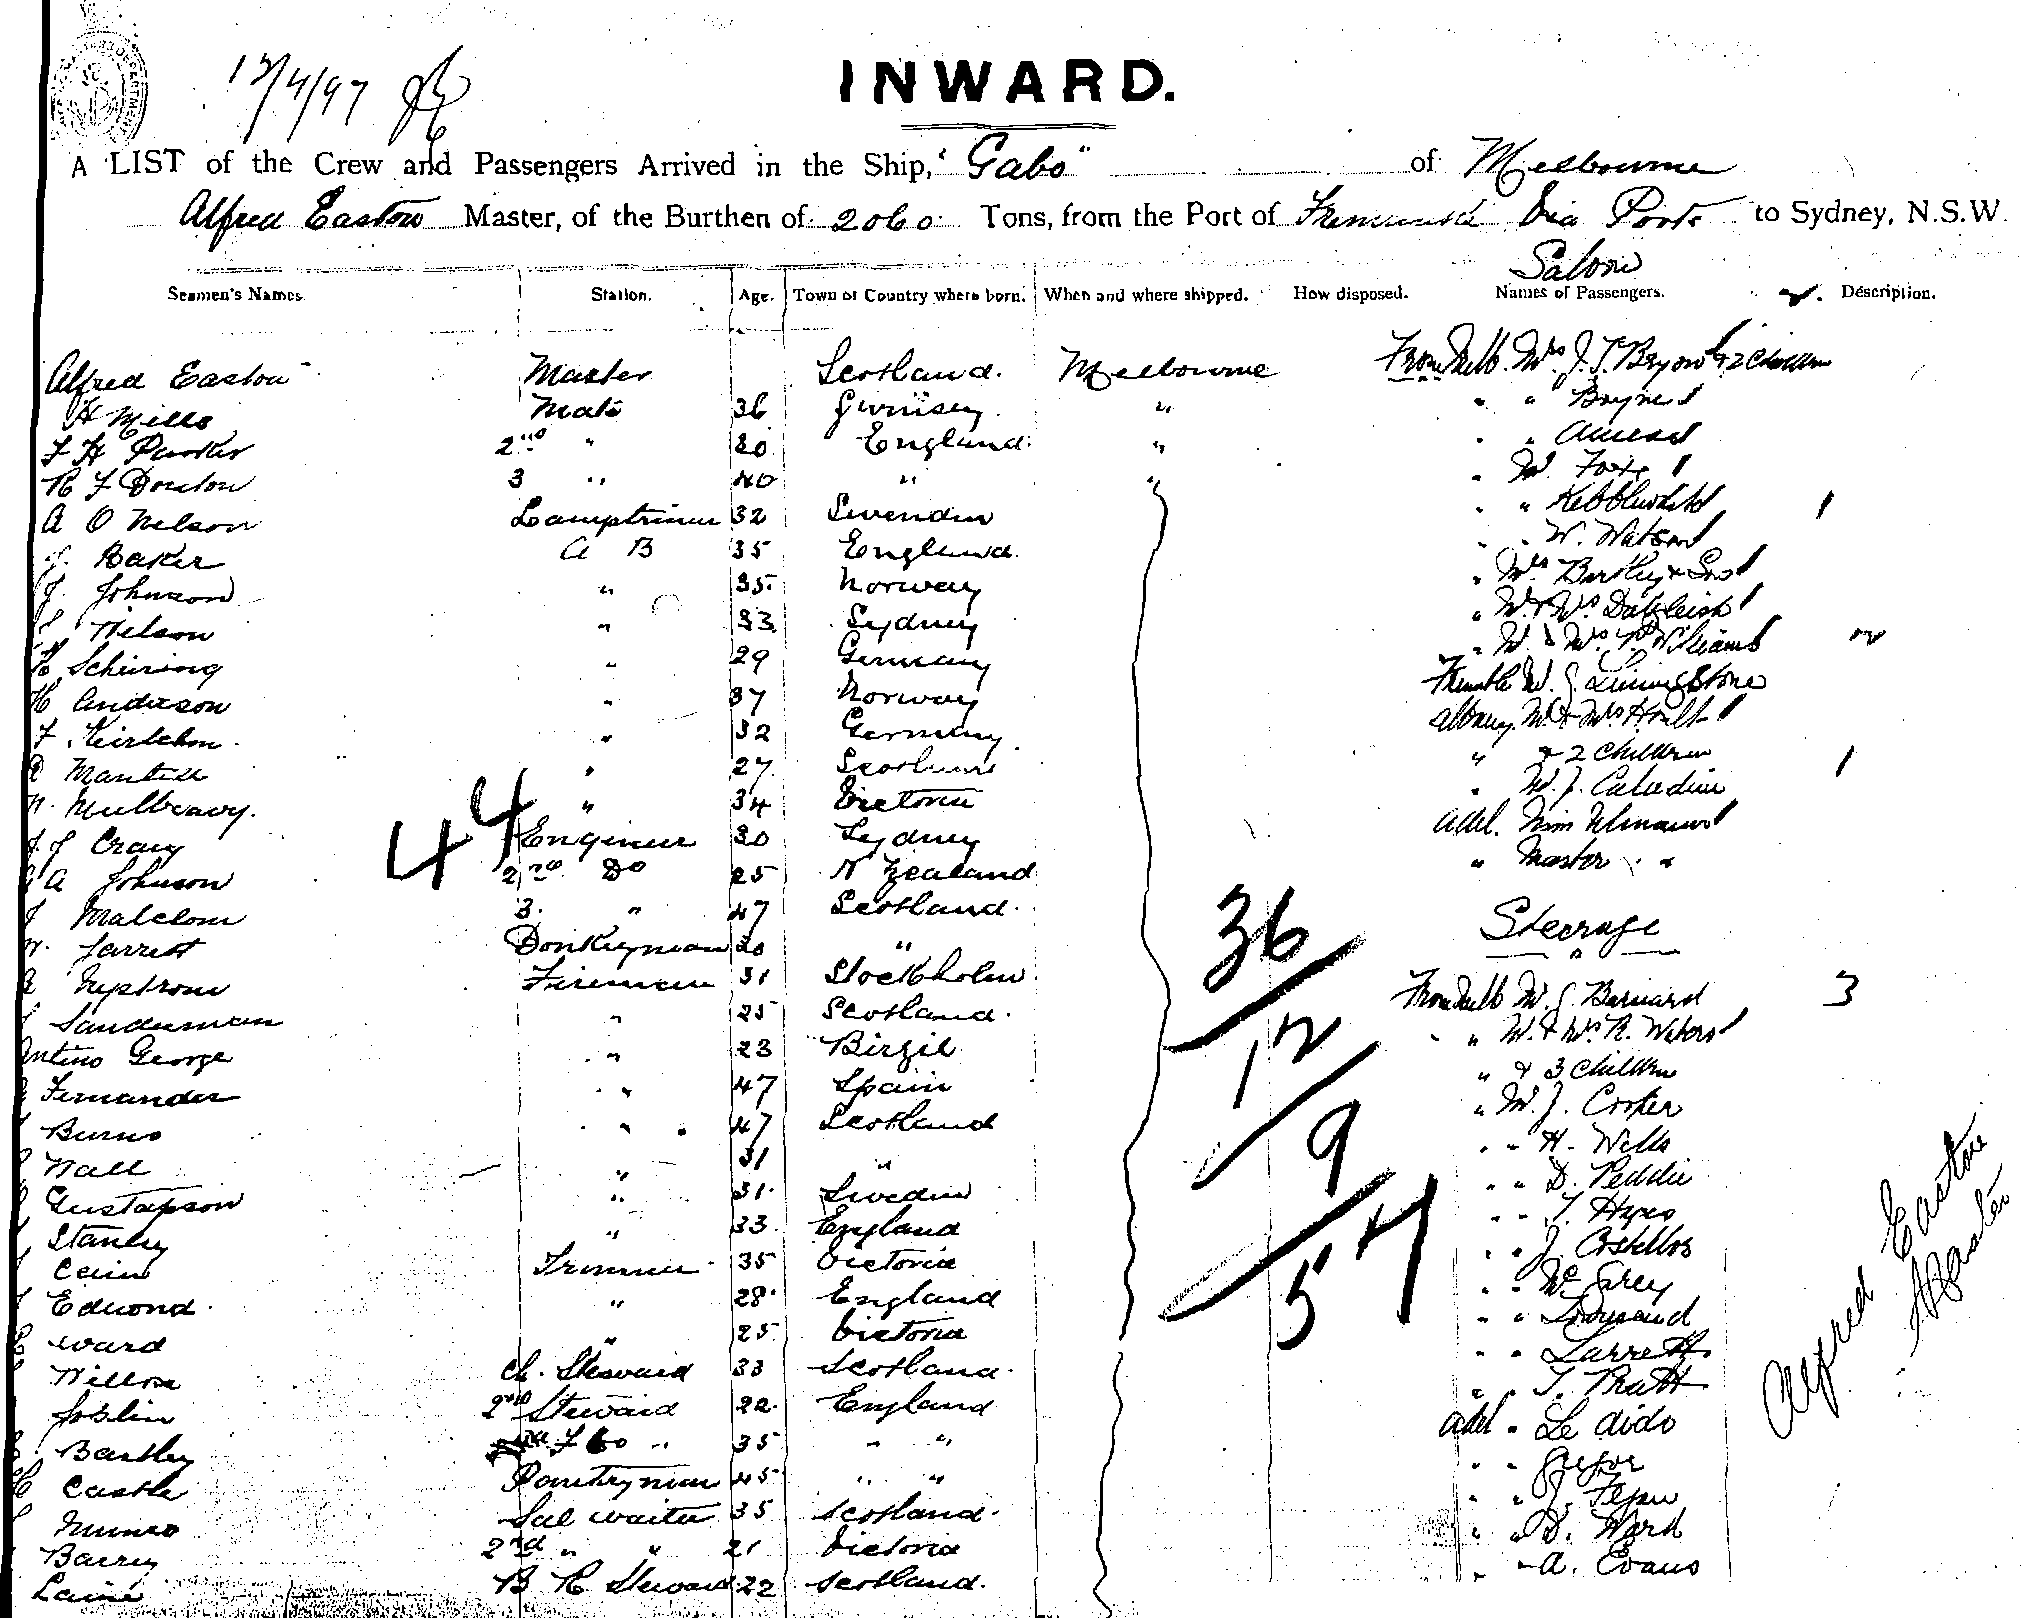 12/4/97
INWARD.
A LIST of the Crew and Passengers Arrived in the Ship, "Gabo" of Melbourne
Alfred Easton Master, of the Burthen of 2060 Tons, from the Port of Fremantle Via Ports to Sydney, N.S.W.
Saloon
Seamen's Names. Station. Age. Town or Country where born. When and where shipped. How disposed. Names of Passengers. Description.
Alfred Easton Master Scotland. Melbourne From Melb. Mrs J. T. Bryon & 2 Children
H Mills Mate 36 Gurnsey " " " Boyne
F H Parker 2nd " 30 England " " "
R F Douton 3 " 40 " " " M. Foote
A O Nelson Lamptrimer 32 Swenden " "
J. Baker A B 35 England. " " W. Watson
J. Johnson " 35 Norway " Mrs Bartley & Son
Nelson " 33 Sydney " Mr & Mrs Dalgleish
Schuring " 29 Germany " M. & Mrs Williams 2
H Anderson " 37 Norway Fremtle M. J. Livingstone
F. " 32 Germany Albany M. & Mrs Hoult
Mantell " 27 Scotland " & 2 Children 1
Mulbravy. " 34 Victoria " M. J. Caladine
44
J J Craig Engineer 30 Sydney Adel. Miss Ulmann
A Johnson 2nd Do 25 N Zealand " Master "
J Malclom 3. " 47 Scotland. Steerage
W. Jarrett Donkeyman 30 "
Nystrom Fireman 31 Stockholm From Melb M. J. Barnard 3
Sanderman " 25 Scotland. " M. & Mrs R. Waters
Antino George " 23 Birzil " & 3 Children
Fernander " 47 Spain " M. J. Cooper
Burns " 47 Scotland " " H. Wells
Nall " 31 " " " D. Peddie
Gustafson " 31 Sweden " " T. Hyres
Stanley " 33 England " " J. Costellos
Cain Trimmer 35 Victoria " " McGrey
Edmond " 28 England " "
Ward " 25 Victoria " " Larrett
Wilson Ch. Steward 33 Scotland. " " T. Pratt
Joslin 2nd Steward 22 England Adel " Le dido
Bartley 35 " " " "
Castle Pantryman 45 " " " " J.
Munro Sal waiter 35 Scotland. " " D. Ward
Barry 2nd " " 21 Victoria " " A. Evans
Laine B R Steward 22 Scotland.
36
12
9
57
Alfred Easton
Master